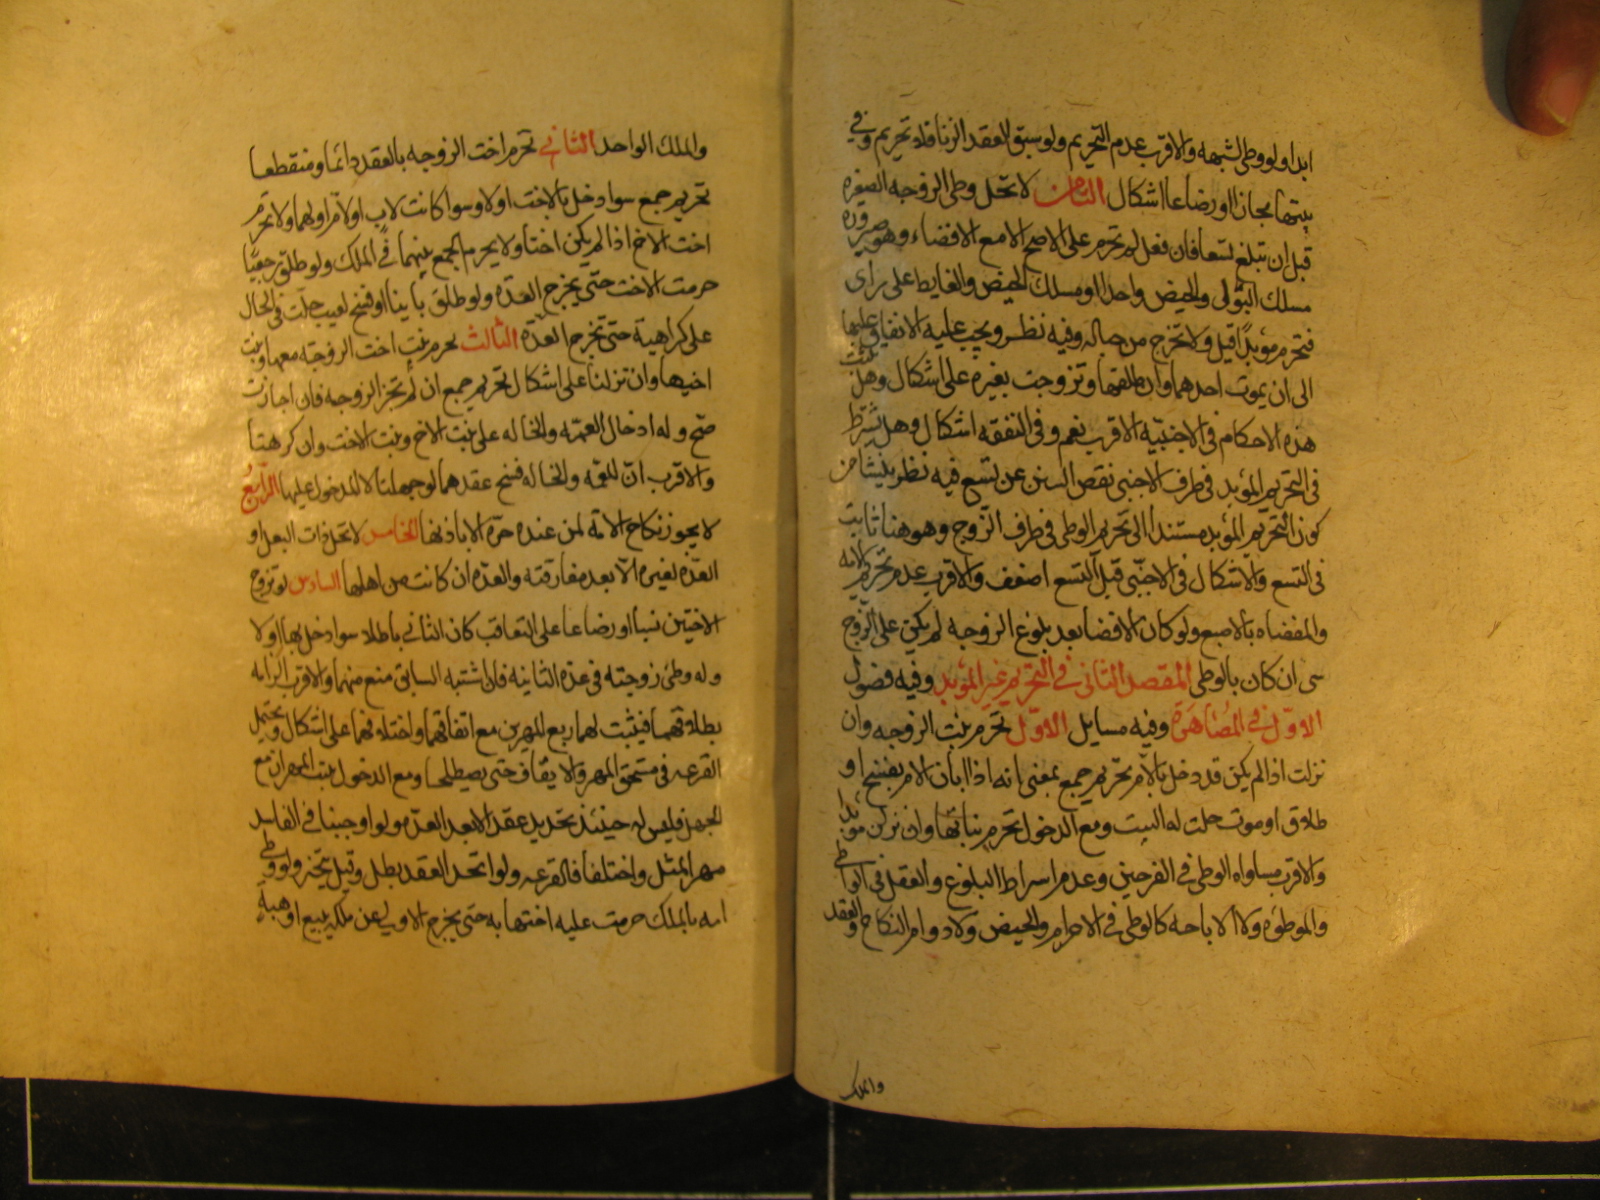 ابدا ولو وطى لشبهه والاقرب عدم التحريم ولو سبق العقد الزنا فلا تحريم وفي
بنتها مجازا او رضاعا اشكال الثامن لا تحل وطى الزوجه الصغيره
قبل ان تبلغ تسعا فان فعل لم تحرم على الاصح الا مع الافضاء وهو صيروره
مسلك البول والحيض واحدا او مسلك الحيض والغايط على راى
فتحرم مؤبدا قيل ولا تخرج من حباله وفيه نظر ويجب عليه الانفاق عليها
الى ان يموت احدهما وان طلقها وتزوجت بغيره على اشكال وهل تثبت
هذه الاحكام فى الاجنبيه الاقرب نعم وفى النفقه اشكال وهل يشترط
فى التحريم المؤبد فى طرف الاجنبى نقص السن عن تسع فيه نظر ينشا من
كون التحريم المؤبد مستندا الى تحريم الوطى فى طرف الزوج وهو هنا ثابت
فى التسع والاشكال فى الاجنبى قبل التسع اضعف والاقرب عدم تحريم الامه
والمفضاه بالاصبع ولو كان الافضا بعد بلوغ الزوجه لم يكن على الزوج
شى ان كان بالوطى المقصد الثانى فى التحريم غير المؤبد وفيه فصول
الاول فى المصاهرة وفيه مسايل الاول تحرم بنت الزوجه وان
نزلت اذا لم يكن قد دخل بالام تحريم جمع بمعنى انه اذا ابان الام بفسخ او
طلاق او موت حلت له البنت ومع الدخول تحرم بناتها وان نزلن مؤبدا
والاقرب مساواه الوطى فى الفرجين وعدم اسراط البلوغ والعقل فى الواطى
والموطؤه ولا الاباحه كالوطى فى الاحرام والحيض ولا دوام النكاح والعقد
والملك
والملك الواحد الثاني تحرم اخت الزوجه بالعقد دائما ومنقطعا
تحريم جمع سوا دخل بالاخت اولا وسوا كانت لاب او لام او لهما ولا تحرم
اخت الاخ اذا لم يكن اختا ولا يحرم الجمع بينهما فى الملك ولو طلق رجعيا
حرمت الاخت حتى يخرج العده ولو طلق باينا او فسخ لعيب حلت فى الحال
على كراهية حتى تخرج العده الثالث تحرم بنت اخت الزوجه معها وبنت
اخيها وان نزلنا على اشكال تحريم جمع ان لم تجز الزوجه فان اجازت
صح وله ادخال العمه والخاله على بنت الاخ وبنت الاخت وان كرهتا
والاقرب ان للعمه والخاله فسخ عقدهما لو جهلتا لا المدخول عليها الرابع
لا يجوز نكاح الامه لمن عنده حره الا باذنها الخامس لا تحل ذات البعل او
العده لغيره الا بعد مفارقته والعده ان كانت من اهلها السادس لو تزوج
الاختين نسبا او رضاعا على التعاقب كان الثاني باطلا سوا دخل بها اولا
وله وطى زوجته فى عدة الثانيه فان اشتبه السابق منع منهما والاقرب الزامه
بطلاقهما فيثبت لهما ربع المهرين مع اتفاقهما واختلافهما على اشكال ويحتمل
القرعه فى مستحق المهر والايقاف حتى يصطلحا ومع الدخول يثبت المهران مع
الجهل فليس له حينئذ تجديد عقد الا بعد العده ولو اوجبنا فى الفاسد
مهر المثل واختلفا فالقرعه ولو اتحد العقد بطل وقيل يتخير ولو وطى
امه بالملك حرمت عليه اختها به حتى يخرج الاولى عن ملكه ببيع او هبة